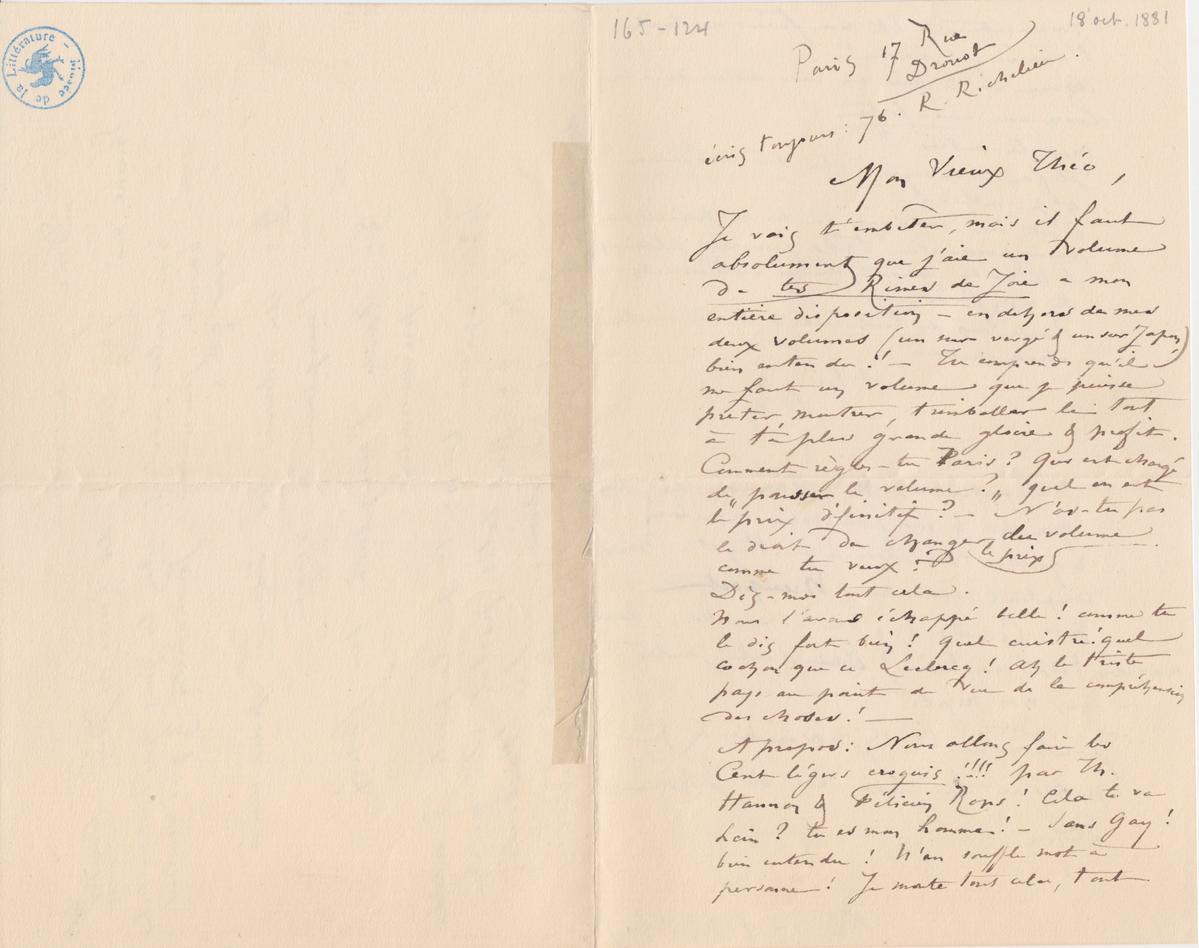 Musée de la Littérature
165-124
18 oct. 1881
Paris 17 Rue
Drouot
écris toujours : 76. R. Richelieu.
Mon Vieux Théo,
Je vais t'embêter, mais il faut
absolument que j'aie un volume
de tes Rimes de Joie a mon
entière disposition – en dehors de mes
deux volumes (un sur vergé & un sur Japon)
bien entendu !! – Tu comprends qu'il
me faut un volume que je puisse
prêter, montrer, trimballer le tout
à ta plus grande gloire & profit.
Comment règles-tu Paris ? Qui est chargé
de „pousser le volume ?„ quel en est
le prix définitif ? – N'as-tu pas
le droit de changer le prix du volume
comme tu veux ?
Dis-moi tout cela.
Nous l'avons échappé belle ! comme tu
le dis fort bien ! Quel cuistre ! quel
cochon que ce Leclercq ! Ah le triste
pays au point de vue de la compréhension
des choses ! –
A propos : Nous allons faire les
Cent légers croquis !!!! par Th.
Hannon & Félicien Rops ! Cela te va
hein ? tu es mon homme ! – Sans Gay !
bien entendu ! N'en souffle mot à
personne ! Je monte tout cela, tout